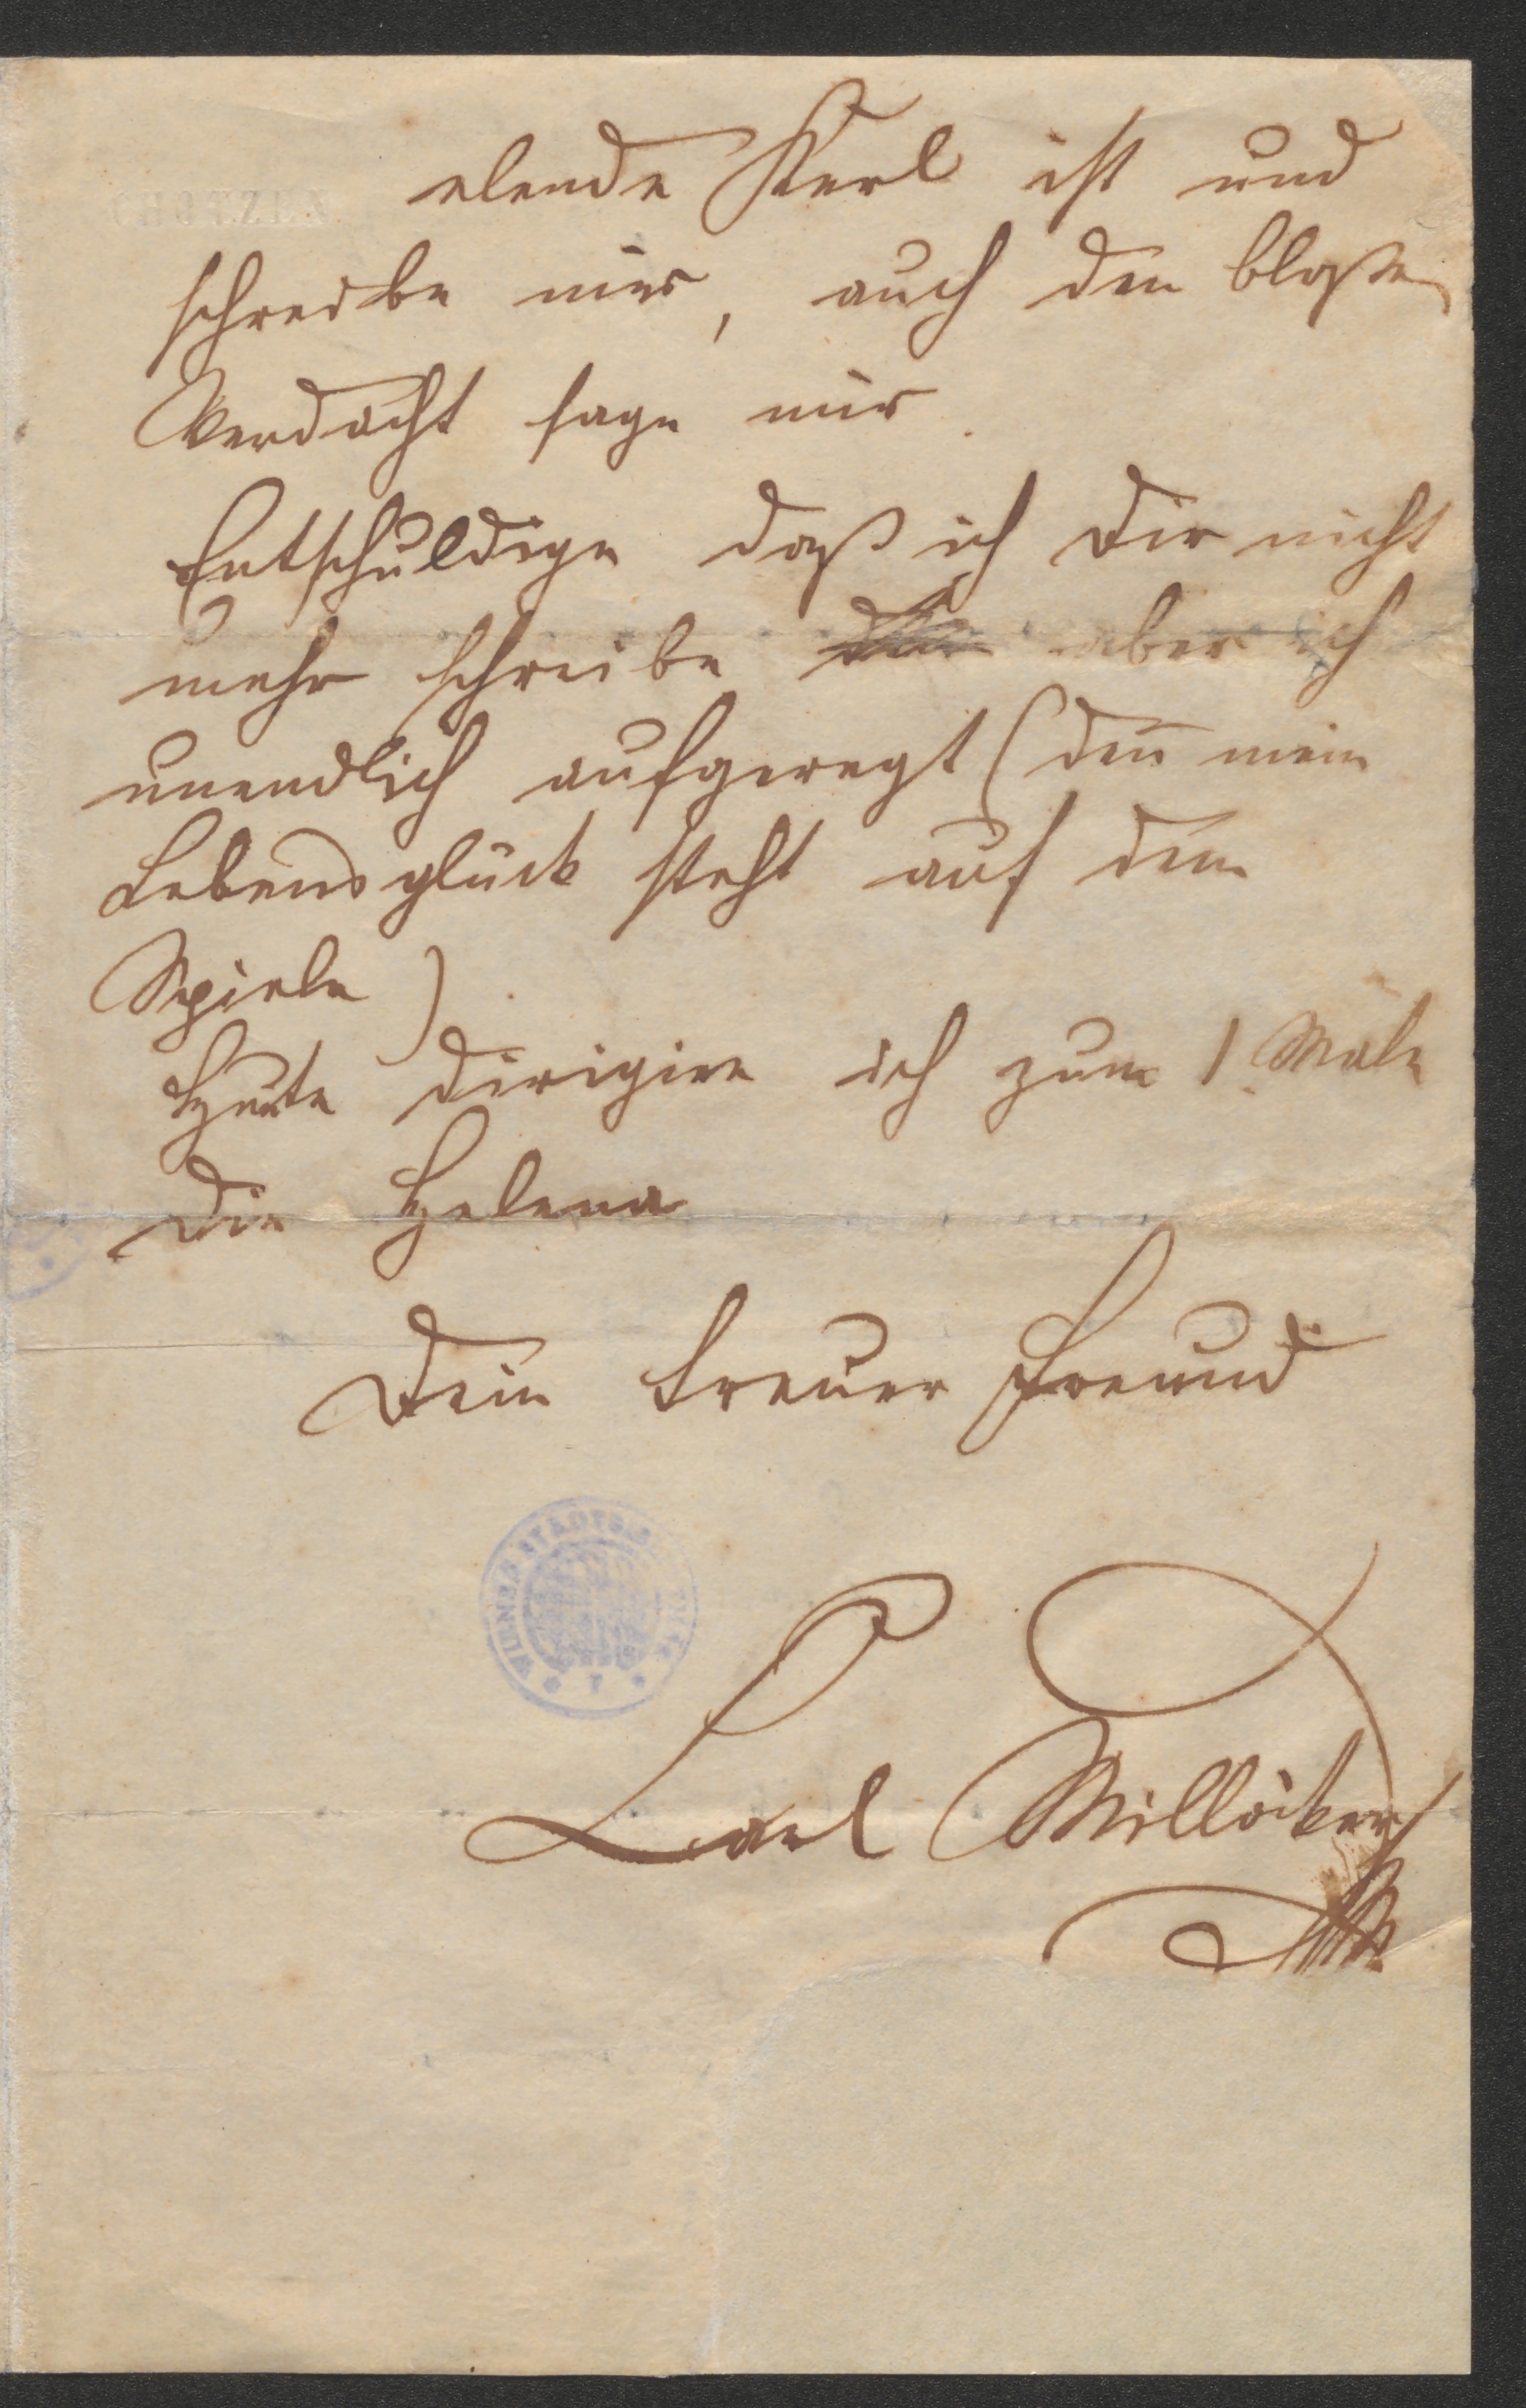 elende Kerl ist und
schreibe mir, auch den bloßen
Verdacht sage mir.
Entschuldige daß ich Dir nicht
mehr schreibe aber ich
unendlich aufgeregt (den̅ mein
Lebensglück steht auf dem
Spiele).
Heute dirigire ich zum 1. Male
die Helena
Dein treuer Freund
WIENER STADTBIBLIOTHEK
* 7 *
Carl Millöcker